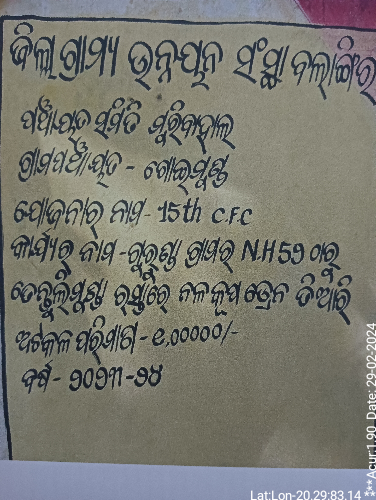 ଜିଲ୍ଲା ଗ୍ରାମ୍ୟ ଉନ୍ନୟନ ସଂସ୍ଥା ବଲାଙ୍ଗିର
ପଞ୍ଚାୟତ ସମିତି ମୁରିବାହାଲ
ଗ୍ରାମପଞ୍ଚାୟତ - ଗୋଇମୁଣ୍ଡା
ଯୋଜନାର ନାମ - 15th C.F.C
କାର୍ଯ୍ୟର ନାମ - ଗୁରୁଣ୍ଡା ଗ୍ରାମର N.H 59 ଠାରୁ
ତେନ୍ତୁଲିମୁଣ୍ଡା ରାସ୍ତାରେ ନଳକୂପ ଡ୍ରେନ ତିଆରି
ଅଟକଳ ପରିମାଣ - ୧,00000/-
ବର୍ଷ - ୨୦୨୩-୨୪
Lat:Lon-20.29:83.14
***Acur:1.90 Date: 29-02-2024